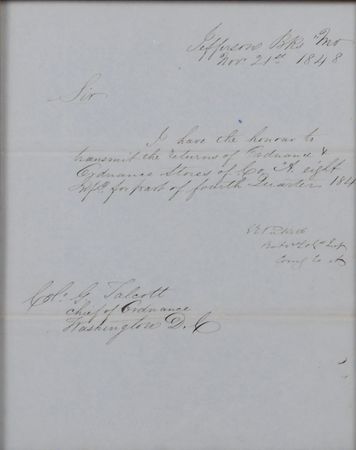 Jefferson Bks Mo
Nov 21st 1848
Sir
I have the honour to
transmit the returns of Ordnance &
Ordnance Stores of Co. A. eight
for part of fourth Quarter 184
Comg Co A
Col. G. Talcott
chief of Ordnance
Washington D. C